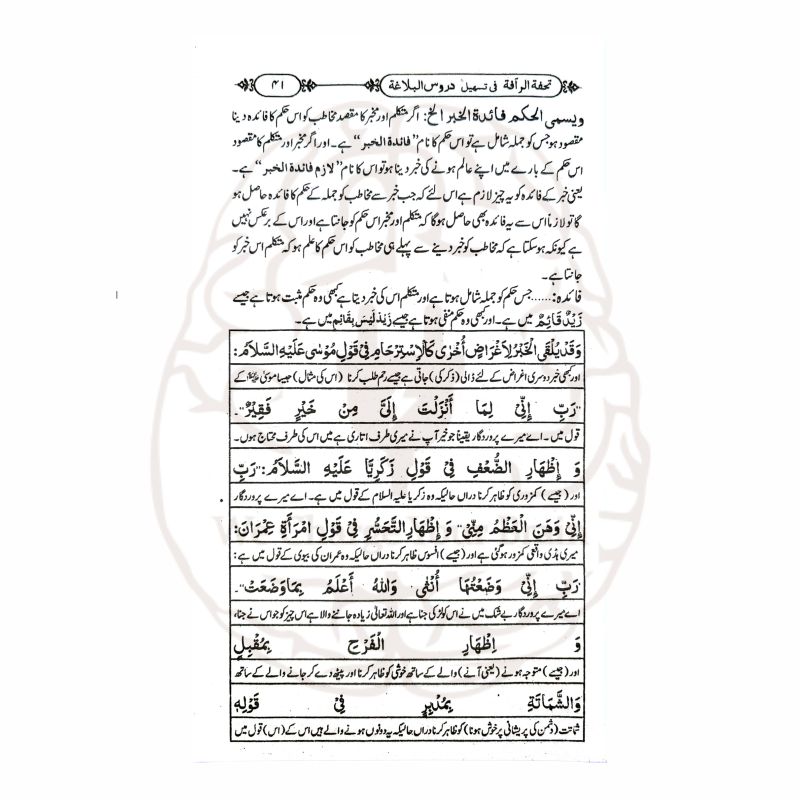 تحفۃ الرأفۃ فی تسہیل دروس البلاغۃ
۴۱
ویسمی الحکم فائدة الخبر الخ: اگر متکلم اور مخبر کا مقصد مخاطب کو اس حکم کا فائدہ دینا
مقصود ہو جس کو جملہ شامل ہے تو اس حکم کا نام ”فائدة الخبر“ ہے۔ اور اگر مخبر اور متکلم کا مقصود
اس حکم کے بارے میں اپنے عالم ہونے کی خبر دینا ہو تو اس کا نام ”لازم فائدة الخبر“ ہے۔
یعنی خبر کے فائدہ کو یہ چیز لازم ہے اس لئے کہ جب خبر سے مخاطب کو جملہ کے حکم کا فائدہ حاصل ہو
گا تو لازماً اس سے یہ فائدہ بھی حاصل ہوگا کہ متکلم اور مخبر اس حکم کو جانتا ہے اور اس کے برعکس نہیں
ہے کیونکہ ہوسکتا ہے کہ مخاطب کو خبر دینے سے پہلے ہی مخاطب کو اس حکم کا علم ہو کہ متکلم اس خبر کو
جانتا ہے۔
فائدہ:...... جس حکم کو جملہ شامل ہوتا ہے اور متکلم اس کی خبر دیتا ہے کبھی وہ حکم مثبت ہوتا ہے جیسے
زَیْدٌ قَائِمٌ میں ہے۔ اور کبھی وہ حکم منفی ہوتا ہے جیسے زَیْدٌ لَیْسَ بِقَائِمٍ میں ہے۔
وَقَدْ یُلْقَی الْخَبَرُ لِاَغْرَاضٍ أُخْرٰی کَالْاِسْتِرْحَامِ فِیْ قَوْلِ مُوْسٰی عَلَیْهِ السَّلَامُ:
اور کبھی خبر دوسری اغراض کے لئے ڈالی (ذکر کی) جاتی ہے جیسے رحم طلب کرنا (اس کی مثال) جیسا موسیٰ علیہ السلام کے
”رَبِّ إِنِّیْ لِمَا أَنْزَلْتَ إِلَیَّ مِنْ خَیْرٍ فَقِیْرٌ“۔
قول میں۔ اے میرے پروردگار یقیناً جو خیر آپ نے میری طرف اتاری ہے میں اس کی طرف محتاج ہوں۔
وَ إِظْهَارِ الضُّعْفِ فِیْ قَوْلِ زَکَرِیَّا عَلَیْهِ السَّلَامُ: ”رَبِّ
اور (جیسے) کمزوری کو ظاہر کرنا دراں حالیکہ وہ زکریا علیہ السلام کے قول میں ہے۔ اے میرے پروردگار
إِنِّیْ وَهَنَ الْعَظْمُ مِنِّیْ“ وَ إِظْهَارِ التَّحَسُّرِ فِیْ قَوْلِ امْرَأَةِ عِمْرَانَ:
میری ہڈی واقعی کمزور ہوگئی ہے اور (جیسے) افسوس ظاہر کرنا دراں حالیکہ وہ عمران کی بیوی کے قول میں ہے:
رَبِّ إِنِّیْ وَضَعْتُهَا أُنْثٰی وَاللهُ أَعْلَمُ بِمَا وَضَعَتْ“۔
اے میرے پروردگار بے شک میں نے اس کو لڑکی جنا ہے اور اللہ تعالیٰ زیادہ جاننے والا ہے اس چیز کو جو اس نے جنا،
وَ إِظْهَارِ الْفَرَحِ بِمُقْبِلٍ
اور (جیسے) متوجہ ہونے (یعنی آنے) والے کے ساتھ خوشی کو ظاہر کرنا اور پیٹھ دے کر جانے والے کے ساتھ
وَالشَّمَاتَةِ بِمُدْبِرٍ فِیْ قَوْلِهٖ
شماتت (دشمن کی پریشانی پر خوش ہونا) کو ظاہر کرنا دراں حالیکہ یہ دونوں ہونے والے ہیں اس کے (اس) قول میں